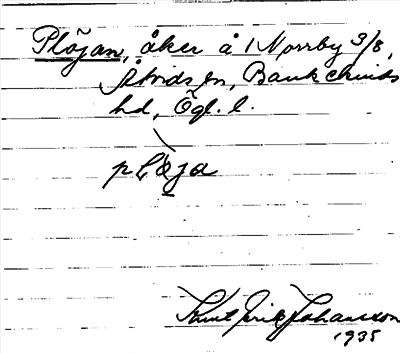 Plöjan, åker å 1 Norrby 3/8,
Åtvids sn, Bankekinds
hd, Ögl. l.
pløja
Knut Erik Johansson
1935